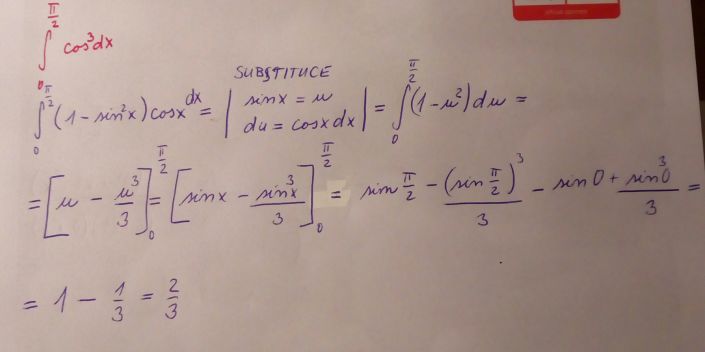 ∫₀^(π/2) cos³dx
SUBSTITUCE
∫₀^(π/2) (1 - sin²x) cosx dx = | sinx = u, du = cosx dx | = ∫₀^(π/2) (1 - u²) du =
= [u - u³/3]₀^(π/2) = [sinx - sinx³/3]₀^(π/2) = sin π/2 - (sin π/2)³/3 - sin0 + sin0³/3 =
= 1 - 1/3 = 2/3